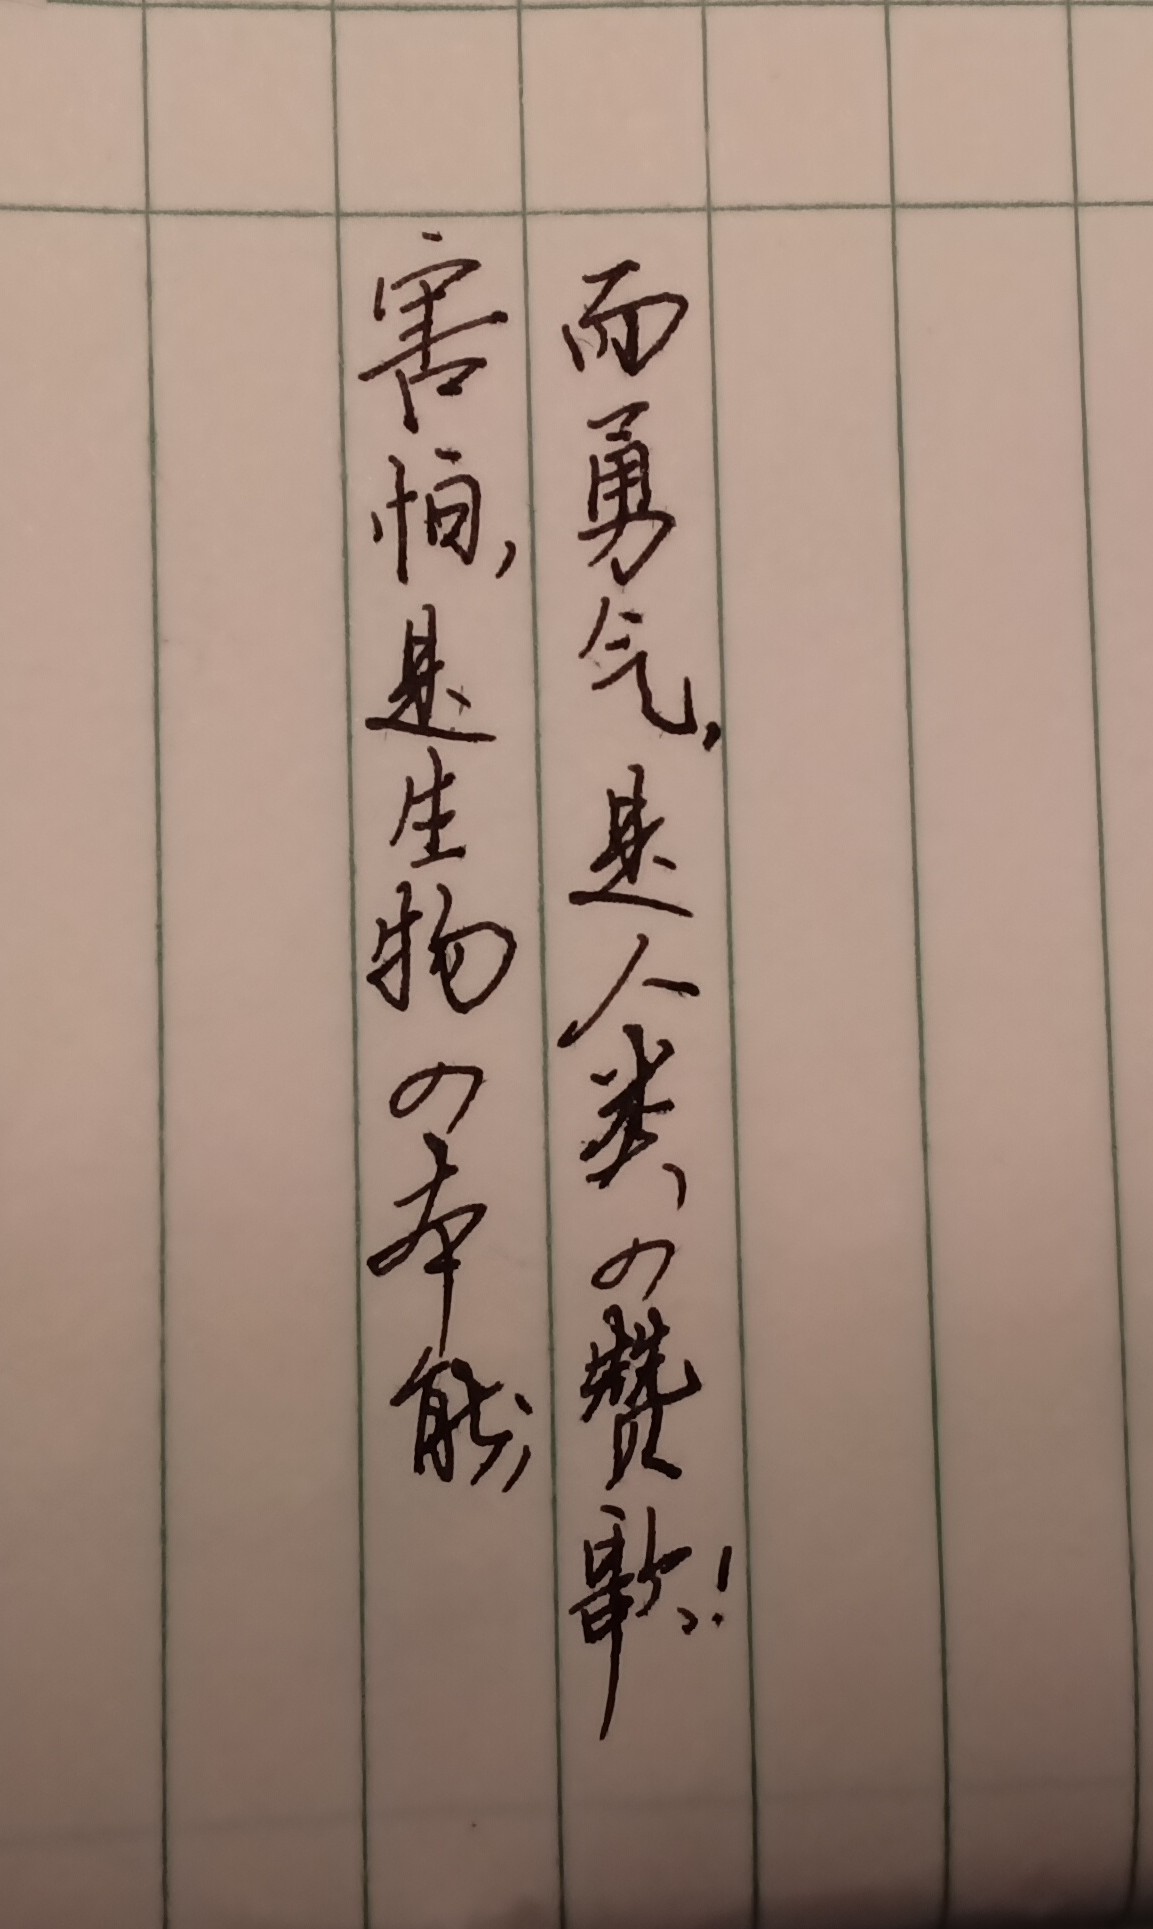 害怕,是生物の本能,
而勇气,是人类の赞歌!